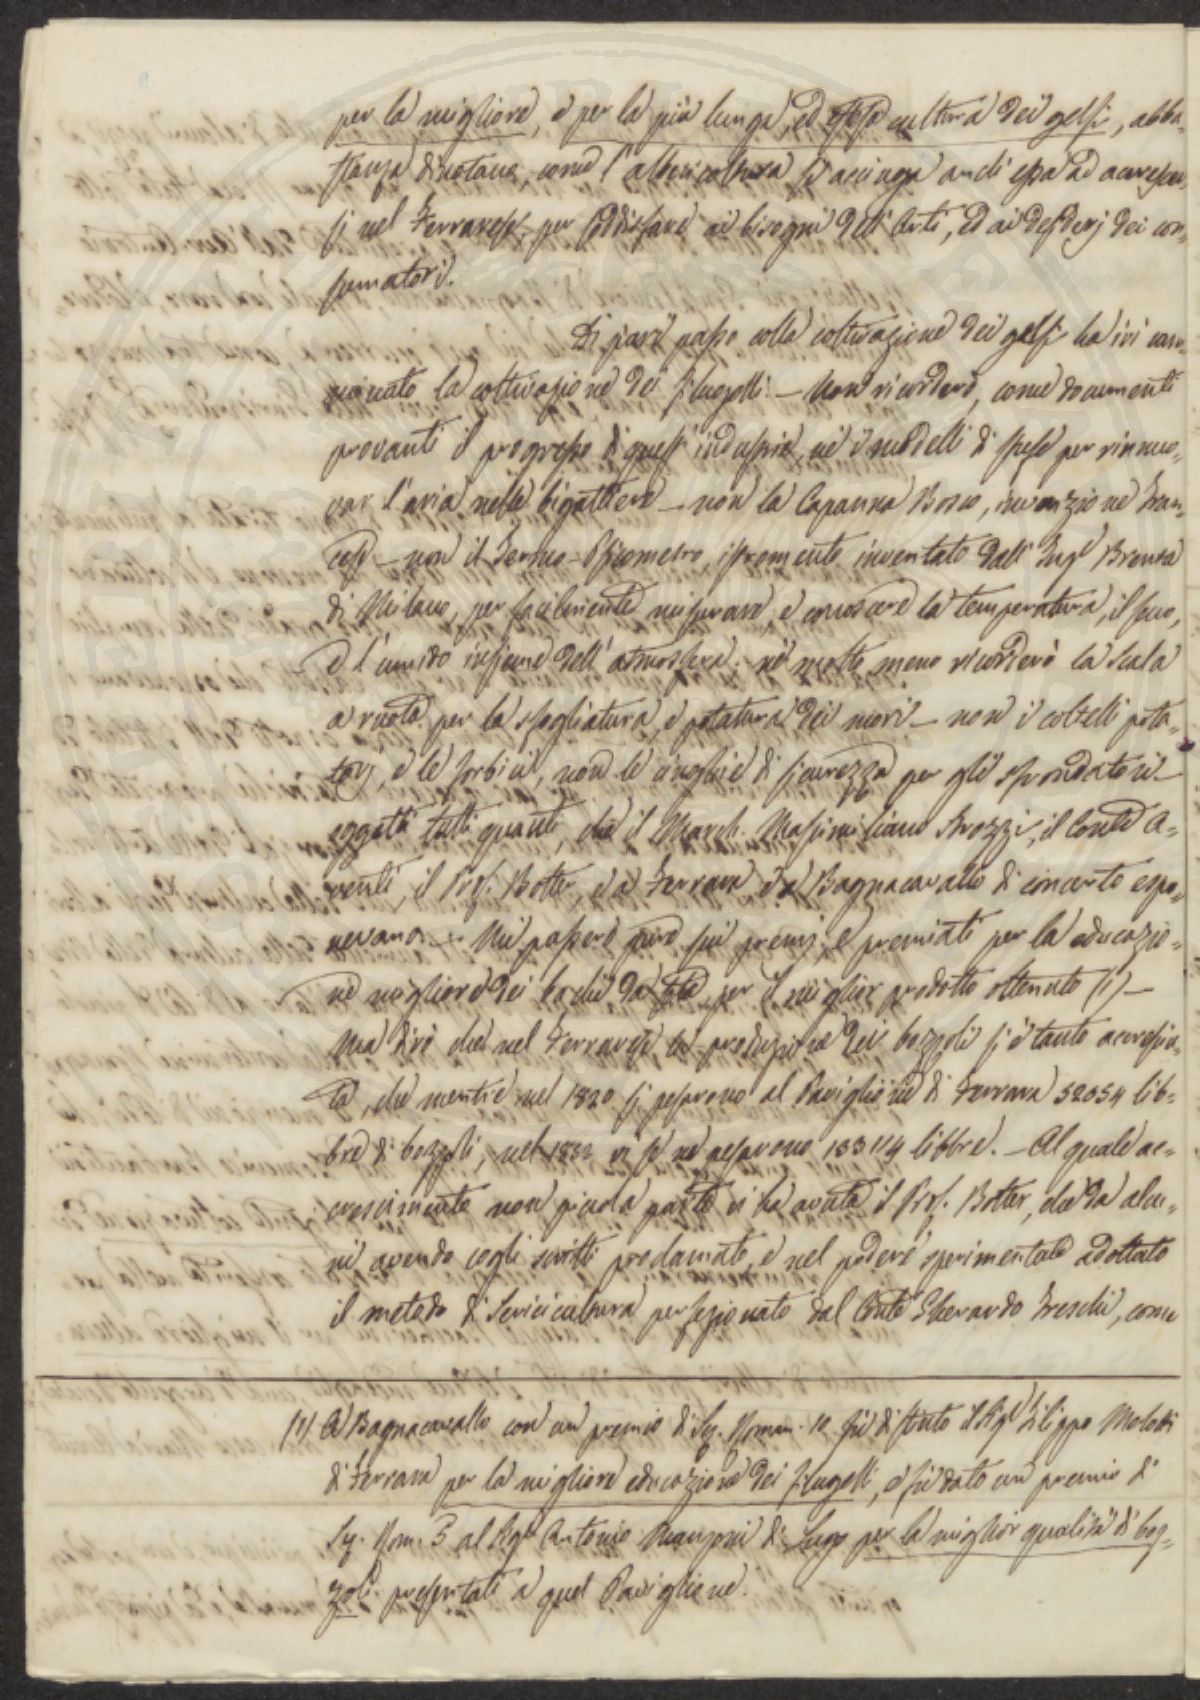 per la migliore, e per la più lunga, ed estesa cultura dei gelsi, abba-
stanza dinotano, come l'albericoltura si accinga anch'essa ad accrescer-
si nel Ferrarese, per soddisfare ai bisogni dell'Arti, ed ai desiderj dei con-
sumatori.
Di pari passo colla coltivazione dei gelsi ha ivi cam-
minato la coltivazione dei filugelli. — Non ricorderò, come documenti
provanti il progresso di quest'industria, nè i modelli di stufe per rinnuo-
var l'aria nelle bigattiere — non la Capanna Bosco, invenzione Fran-
cese — non il Termo-Psicrometro, istromento inventato dall'Ingr Brenta
di Milano, per facilmente misurare, e conoscere la temperatura, il secco,
e l'umido insieme dell'atmosfera; nè molto meno ricorderò la Scala
a ruota per la sfogliatura, e potatura dei mori — non i coltelli pota-
toj, e le forbici, non le cinghie di sicurezza per gli sfrondatori —
oggetti tutti quanti, che il March. Massimiliano Strozzi, il Conte A-
venti, il Prof. Botter, e a Ferrara e a Bagnacavallo di concerto espo-
nevano. — Mi passerò pure sui premj, e premiati per la educazio-
ne migliore dei bachi da seta, per il miglior prodotto ottenuto (1) —
Ma dirò che nel Ferrarese la produzione dei bozzoli si è tanto accresciu-
ta, che mentre nel 1820 si pesarono al Paviglione di Ferrara 52054 lib-
bre di bozzoli, nel vi se ne pesarono 133114 libbre. — Al quale ac-
crescimento non picciola parte vi ha avuta il Prof. Botter, che da alcu-
ni avendo cogli scritti proclamato, e nel podere sperimentale adottato
il metodo di Sericicultura perfezionato dal Conte Gherardo Freschi, come
(1) A Bagnacavallo con un premio di Sc. Roman. 10 fu distinto il Sigr Filippo
di Ferrara per la migliore educazione dei filugelli, e fu dato un premio di
Sc. Rom. 5 al Sigr Antonio Manzoni di Lugo per la miglior qualità di boz-
zoli presentati a quel Paviglione.